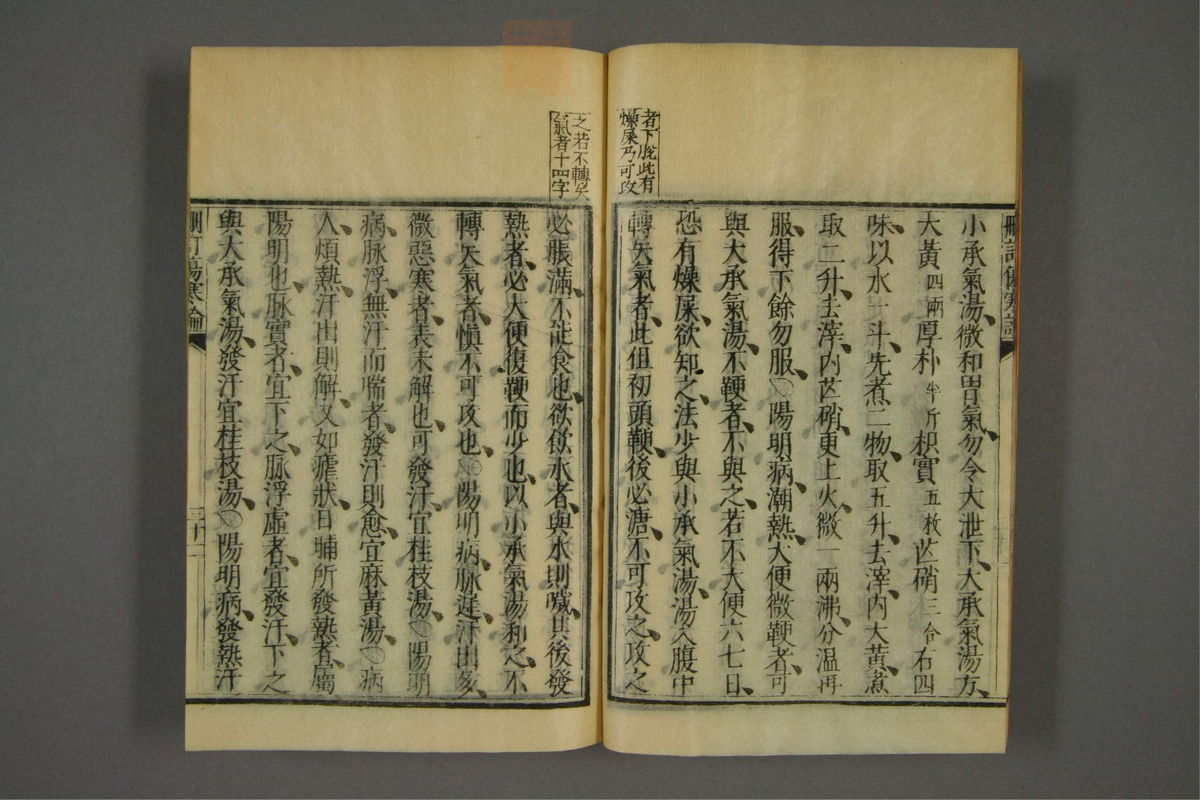 者下脫此有
燥屎乃可攻
小承氣湯微和胃氣勿令大泄下大承氣湯方
大黃四兩厚朴半斤枳實五枚芒硝三合右四
味以水一斗先煮二物取五升去滓內大黃煮
取二升去滓內芒硝更上火微一兩沸分溫再
服得下餘勿服〇陽明病潮熱大便微鞕者可
與大承氣湯不鞕者不與之若不大便六七日
恐有燥屎欲知之法少與小承氣湯湯入腹中
轉失氣者此但初頭鞕後必溏不可攻之攻之
之若不轉失
氣者十四字
必脹滿不能食也欲飲水者與水則噦其後發
熱者必大便復鞕而少也以小承氣湯和之不
轉失氣者愼不可攻也〇陽明病脈遲汗出多
微惡寒者表未解也可發汗宜桂枝湯〇陽明
病脈浮無汗而喘者發汗則愈宜麻黃湯〇病
人煩熱汗出則解又如瘧狀日晡所發熱者屬
陽明也脈實者宜下之脈浮虛者宜發汗下之
與大承氣湯發汗宜桂枝湯〇陽明病發熱汗
刪訂傷寒論
三十一